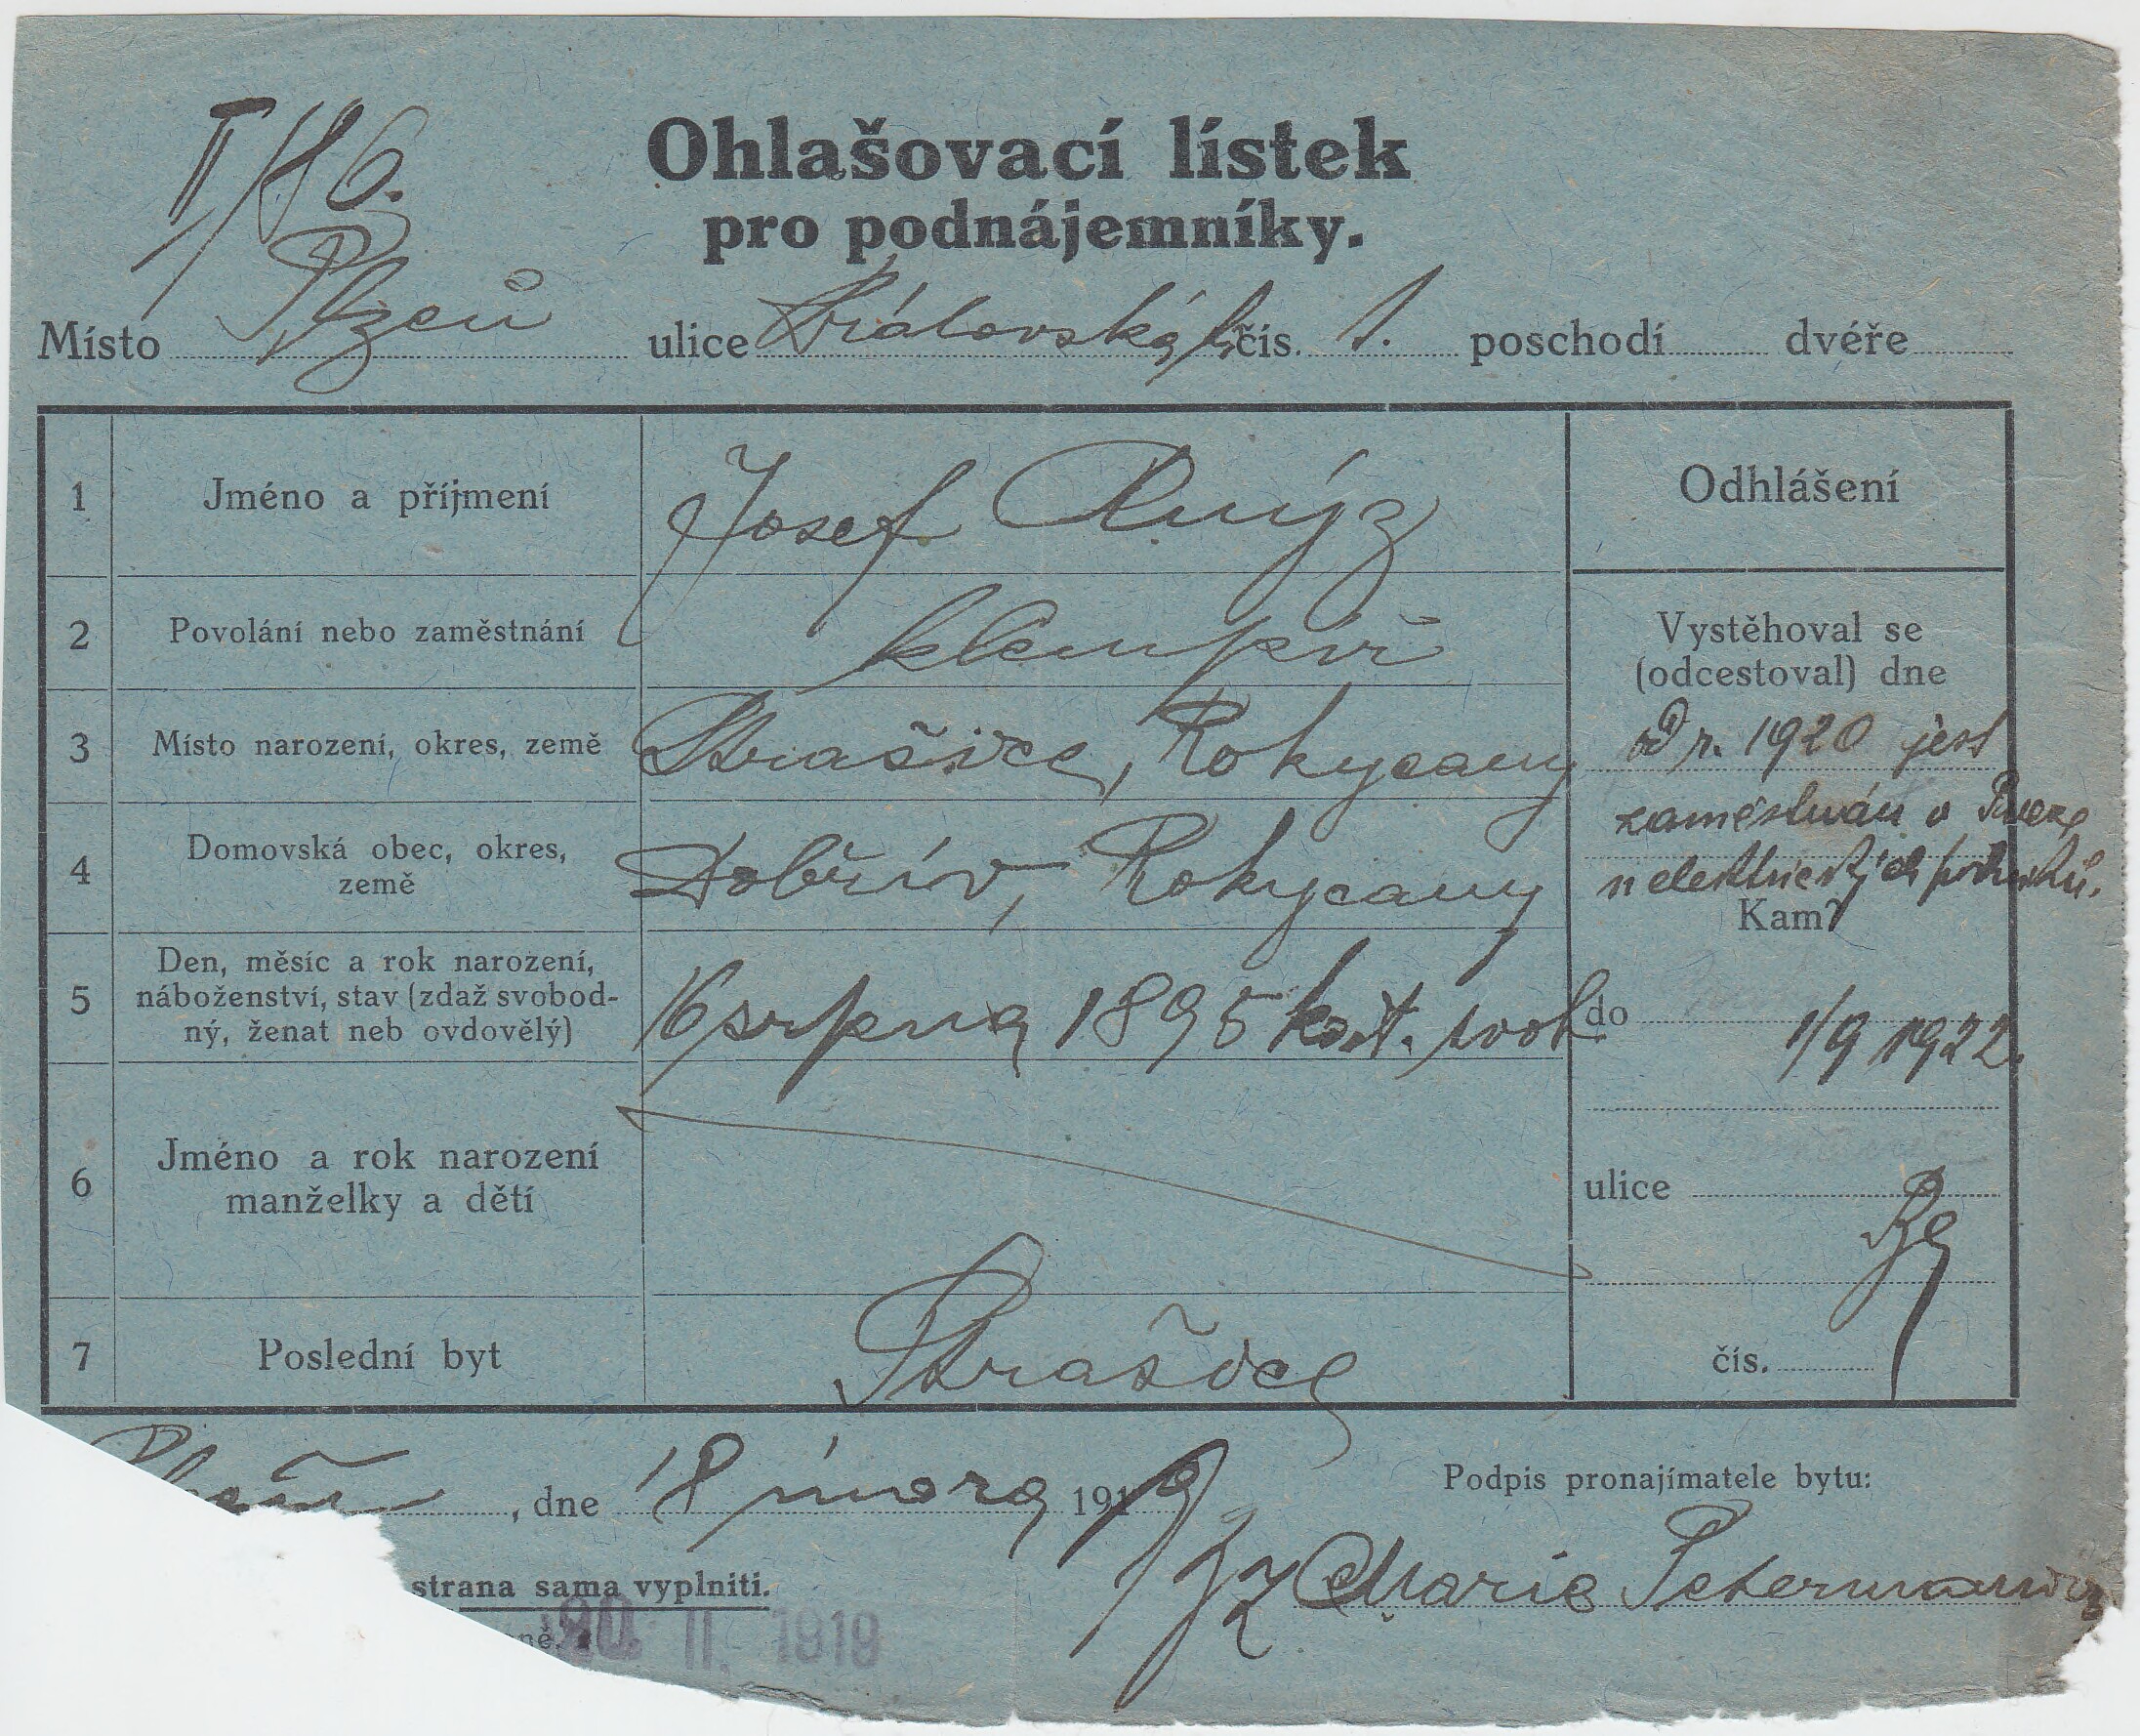 II/86.
Ohlašovací lístek
pro podnájemníky.
Místo Plzeň ulice Královská čís. 1. poschodí dvéře
1 Jméno a příjmení Josef
Odhlášení
2 Povolání nebo zaměstnání klempíř
Vystěhoval se
(odcestoval) dne
3 Místo narození, okres, země Strašice, Rokycany
od r. 1920 jest
zaměstnán v
4 Domovská obec, okres,
země Dobřív, Rokycany
u elektrických podniků.
Kam?
5 Den, měsíc a rok narození,
náboženství, stav (zdaž svobod-
ný, ženat neb ovdovělý) 16 srpna 1895 kat. svob
do
1/9 1922.
6 Jméno a rok narození
manželky a dětí
ulice
7 Poslední byt Strašice
čís.
Plzeň, dne 18 února 1919
Podpis pronajímatele bytu:
Marie Petermannová
strana sama vyplniti.
ně.
20. II. 1919